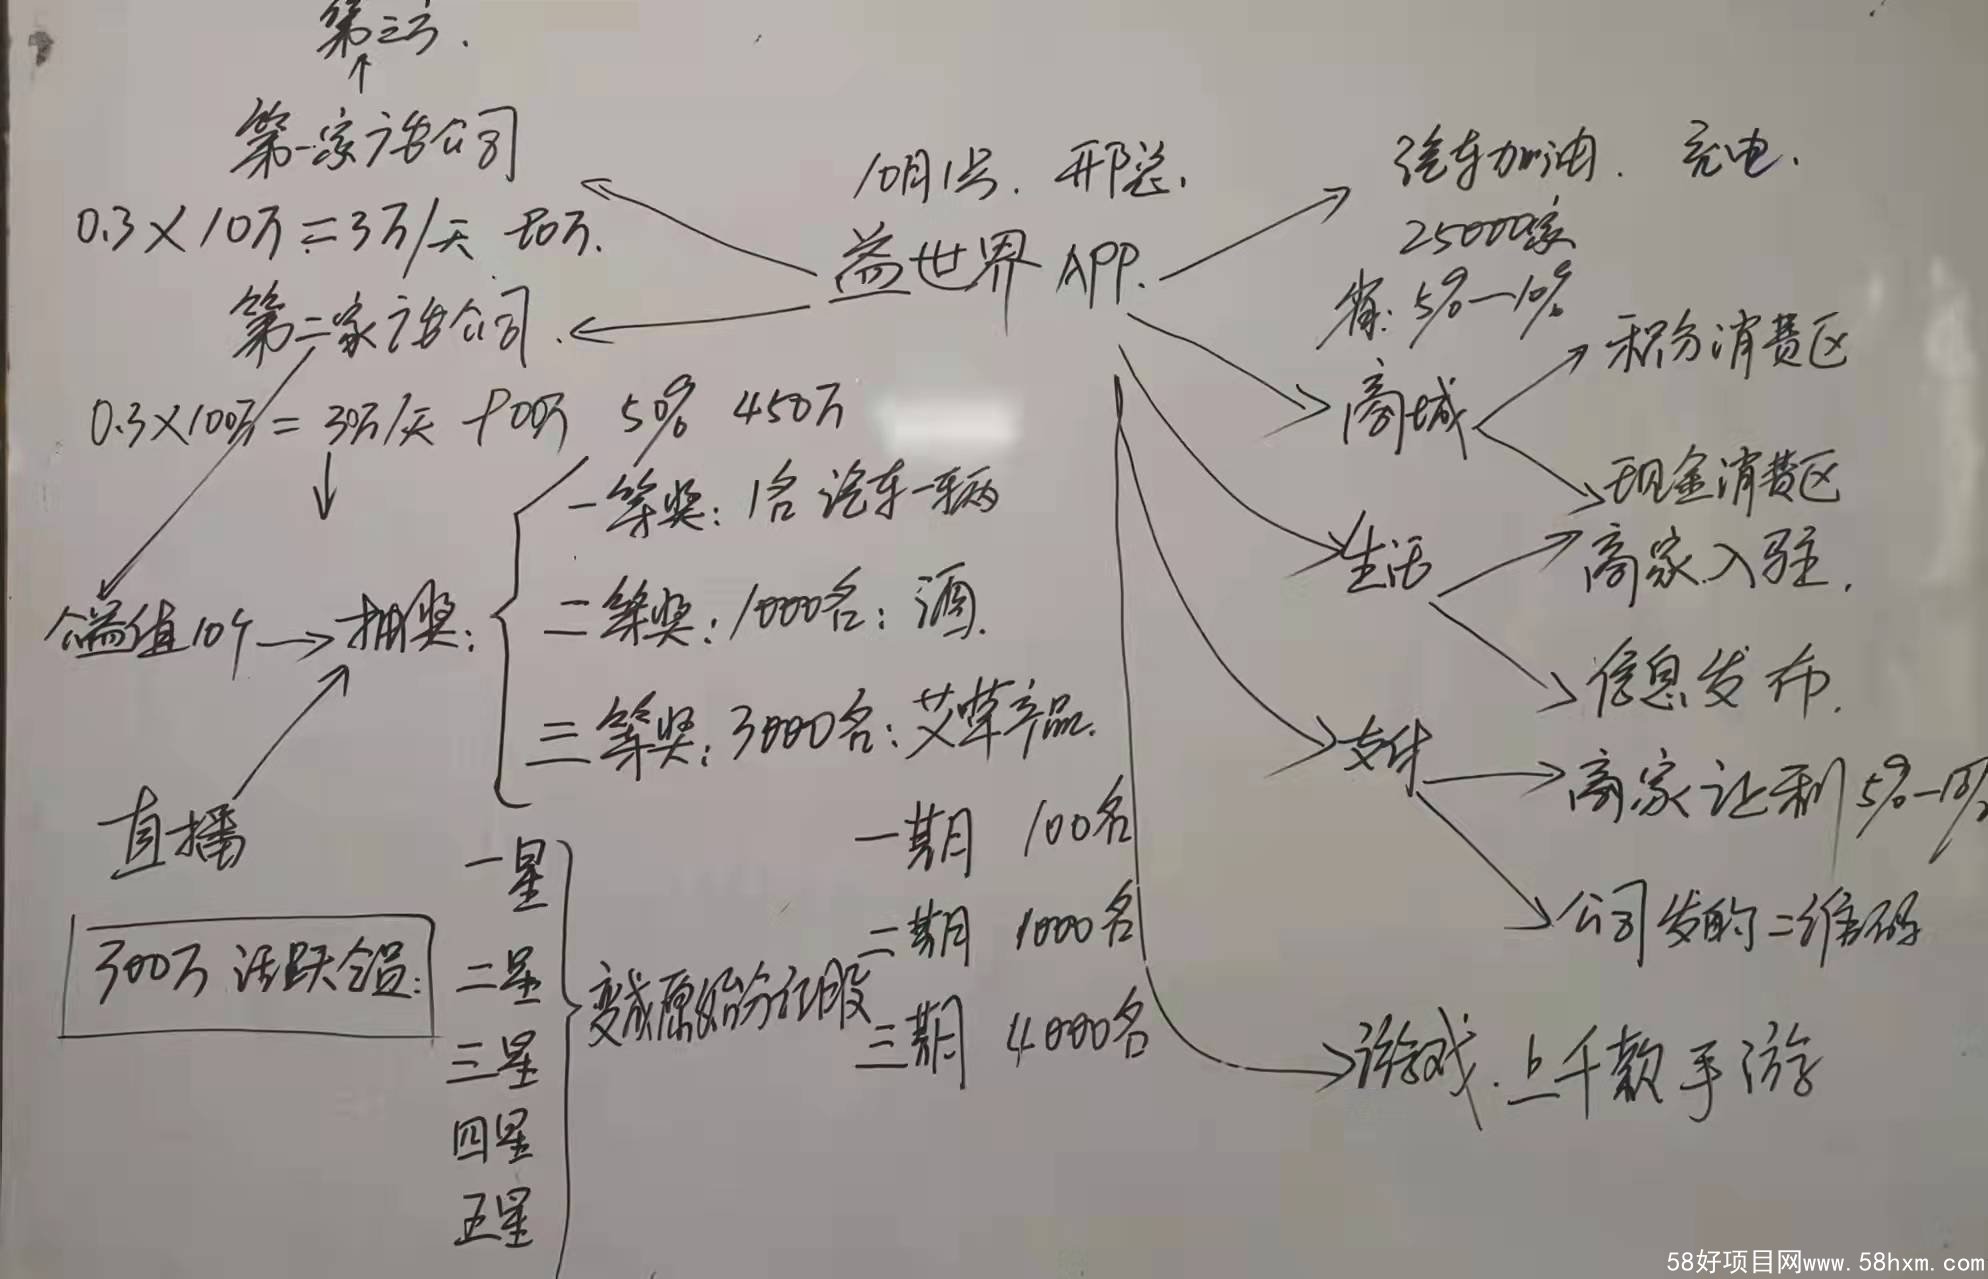 第三家.
第一家广告公司
0.3×10万=3万/天 90万.
第二家广告公司.
0.3×100万=30万/天 900万 50% 450万
益值10个
抽奖:
一等奖:1名 汽车一辆
二等奖:1000名:酒.
三等奖:3000名:艾草产品.
直播
300万 活跃会员:
一星
二星
三星
四星
五星
变成原始分红股
一期 100名
二期 1000名
三期 4000名
10月1号. 邢总.
益世界 APP.
汽车加油. 充电.
25000家
省:5%—10%
商城
积分消费区
现金消费区
生活
商家入驻.
信息发布.
支付
商家让利5%—10%
公司发的二维码
游戏.上千款手游
58好项目网www.58hxm.com